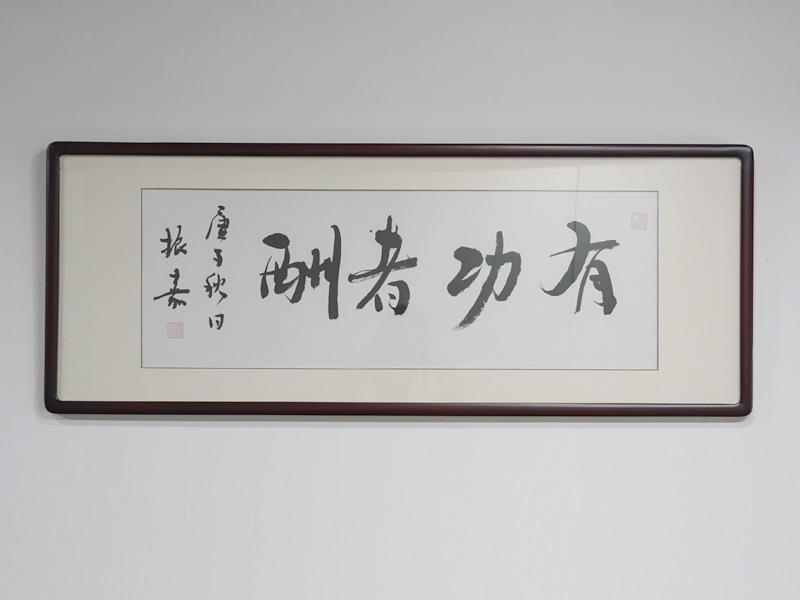 有功者酬
庚子秋月
振嘉